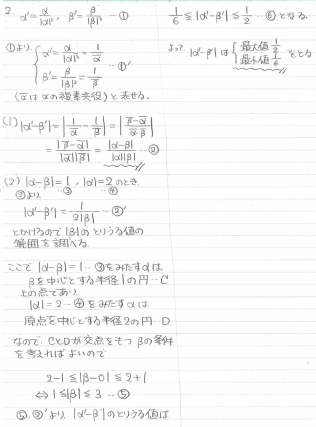 2. α'=α/|α|², β'=β/|β|² …①
①より、
{ α'=α/|α|²=1/ᾱ
β'=β/|β|²=1/β̄ …①'
(ᾱはαの複素共役)と表せる.
(1) |α'-β'|=|1/ᾱ - 1/β̄|=|(β̄-ᾱ)/(ᾱ・β̄)|
=|β̄-ᾱ|/(|ᾱ||β̄|)=|α-β|/(|α||β|) …②
(2) |α-β|=1 …③, |α|=2 …④ のとき,
②より
|α'-β'|=1/(2|β|) …②'
とかけるので|β|のとりうる値の
範囲を調べる
ここで |α-β|=1…③をみたすαは
βを中心とする半径1の円…C
上の点であり
|α|=2…④をみたすαは
原点を中心とする半径2の円…D
なので、CとDが交点をもつ βの条件
を考えればよいので
2-1≦|β-0|≦2+1
⇔ 1≦|β|≦3 …⑤
⑤,②'より、|α'-β'|のとりうる値は
1/6≦|α'-β'|≦1/2 …⑥となる.
よって |α'-β'|は { 最大値 1/2
最小値 1/6 をとる